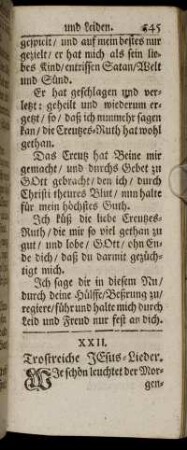 und Leiden. 645
gespielt / und auf mein bestes nur
gezielt / er hat mich als sein lie-
bes Kind / entrissen Satan / Welt
und Sünd.
Er hat geschlagen und ver-
letzt: geheilt und wiederum er-
getzt / so / daß ich nunmehr sagen
kan / die Creutzes-Ruth hat wohl
gethan.
Das Creutz hat Beine mir
gemacht / und durchs Gebet zu
GOtt gebracht / den ich / durch
Christi theures Blut / nun halte
für mein höchstes Guth.
Ich küß die liebe Creutzes-
Ruth / die mir so viel gethan zu
gut / und lobe / GOtt / ohn En-
de dich / daß du darmit gezüch-
tigt mich.
Ich sage dir in diesem Nu /
durch deine Hülffe / Beßrung zu /
regiere / führ und halte mich durch
Leid und Freud nur fest an dich.
XXII.
Trostreiche JEsus-Lieder.
WIe schön leuchtet der Mor-
gen-